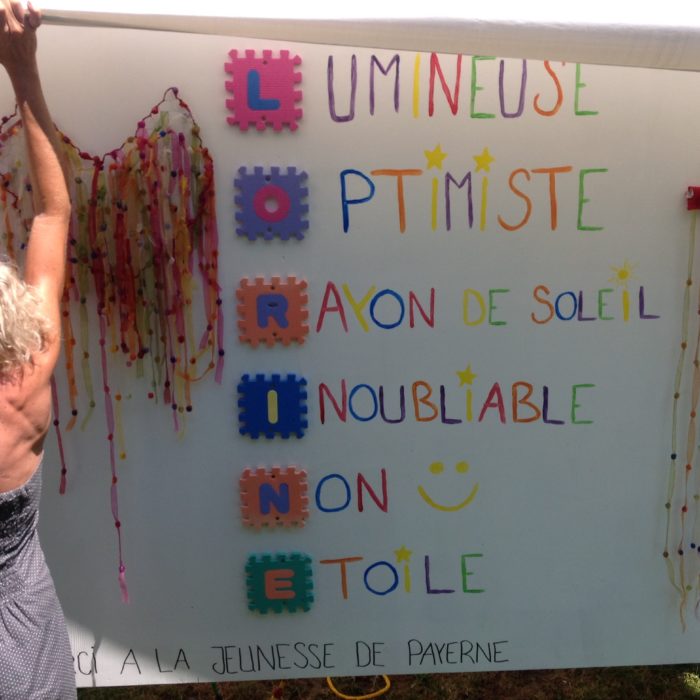 LUMINEUSE
OPTIMISTE
RAYON DE SOLEIL
INOUBLIABLE
NON
ETOILE
A LA JEUNESSE DE PAYERNE